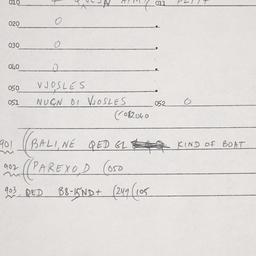 010 011
020 0
030 0
040 0
050 VJOSLES
051 NUGN DI VJOSLES 052 0
901 ((BALI,NE QED GL KIND OF BOAT
902 ((PAREYO,D (050
903 QED 88-KND+ (249(105